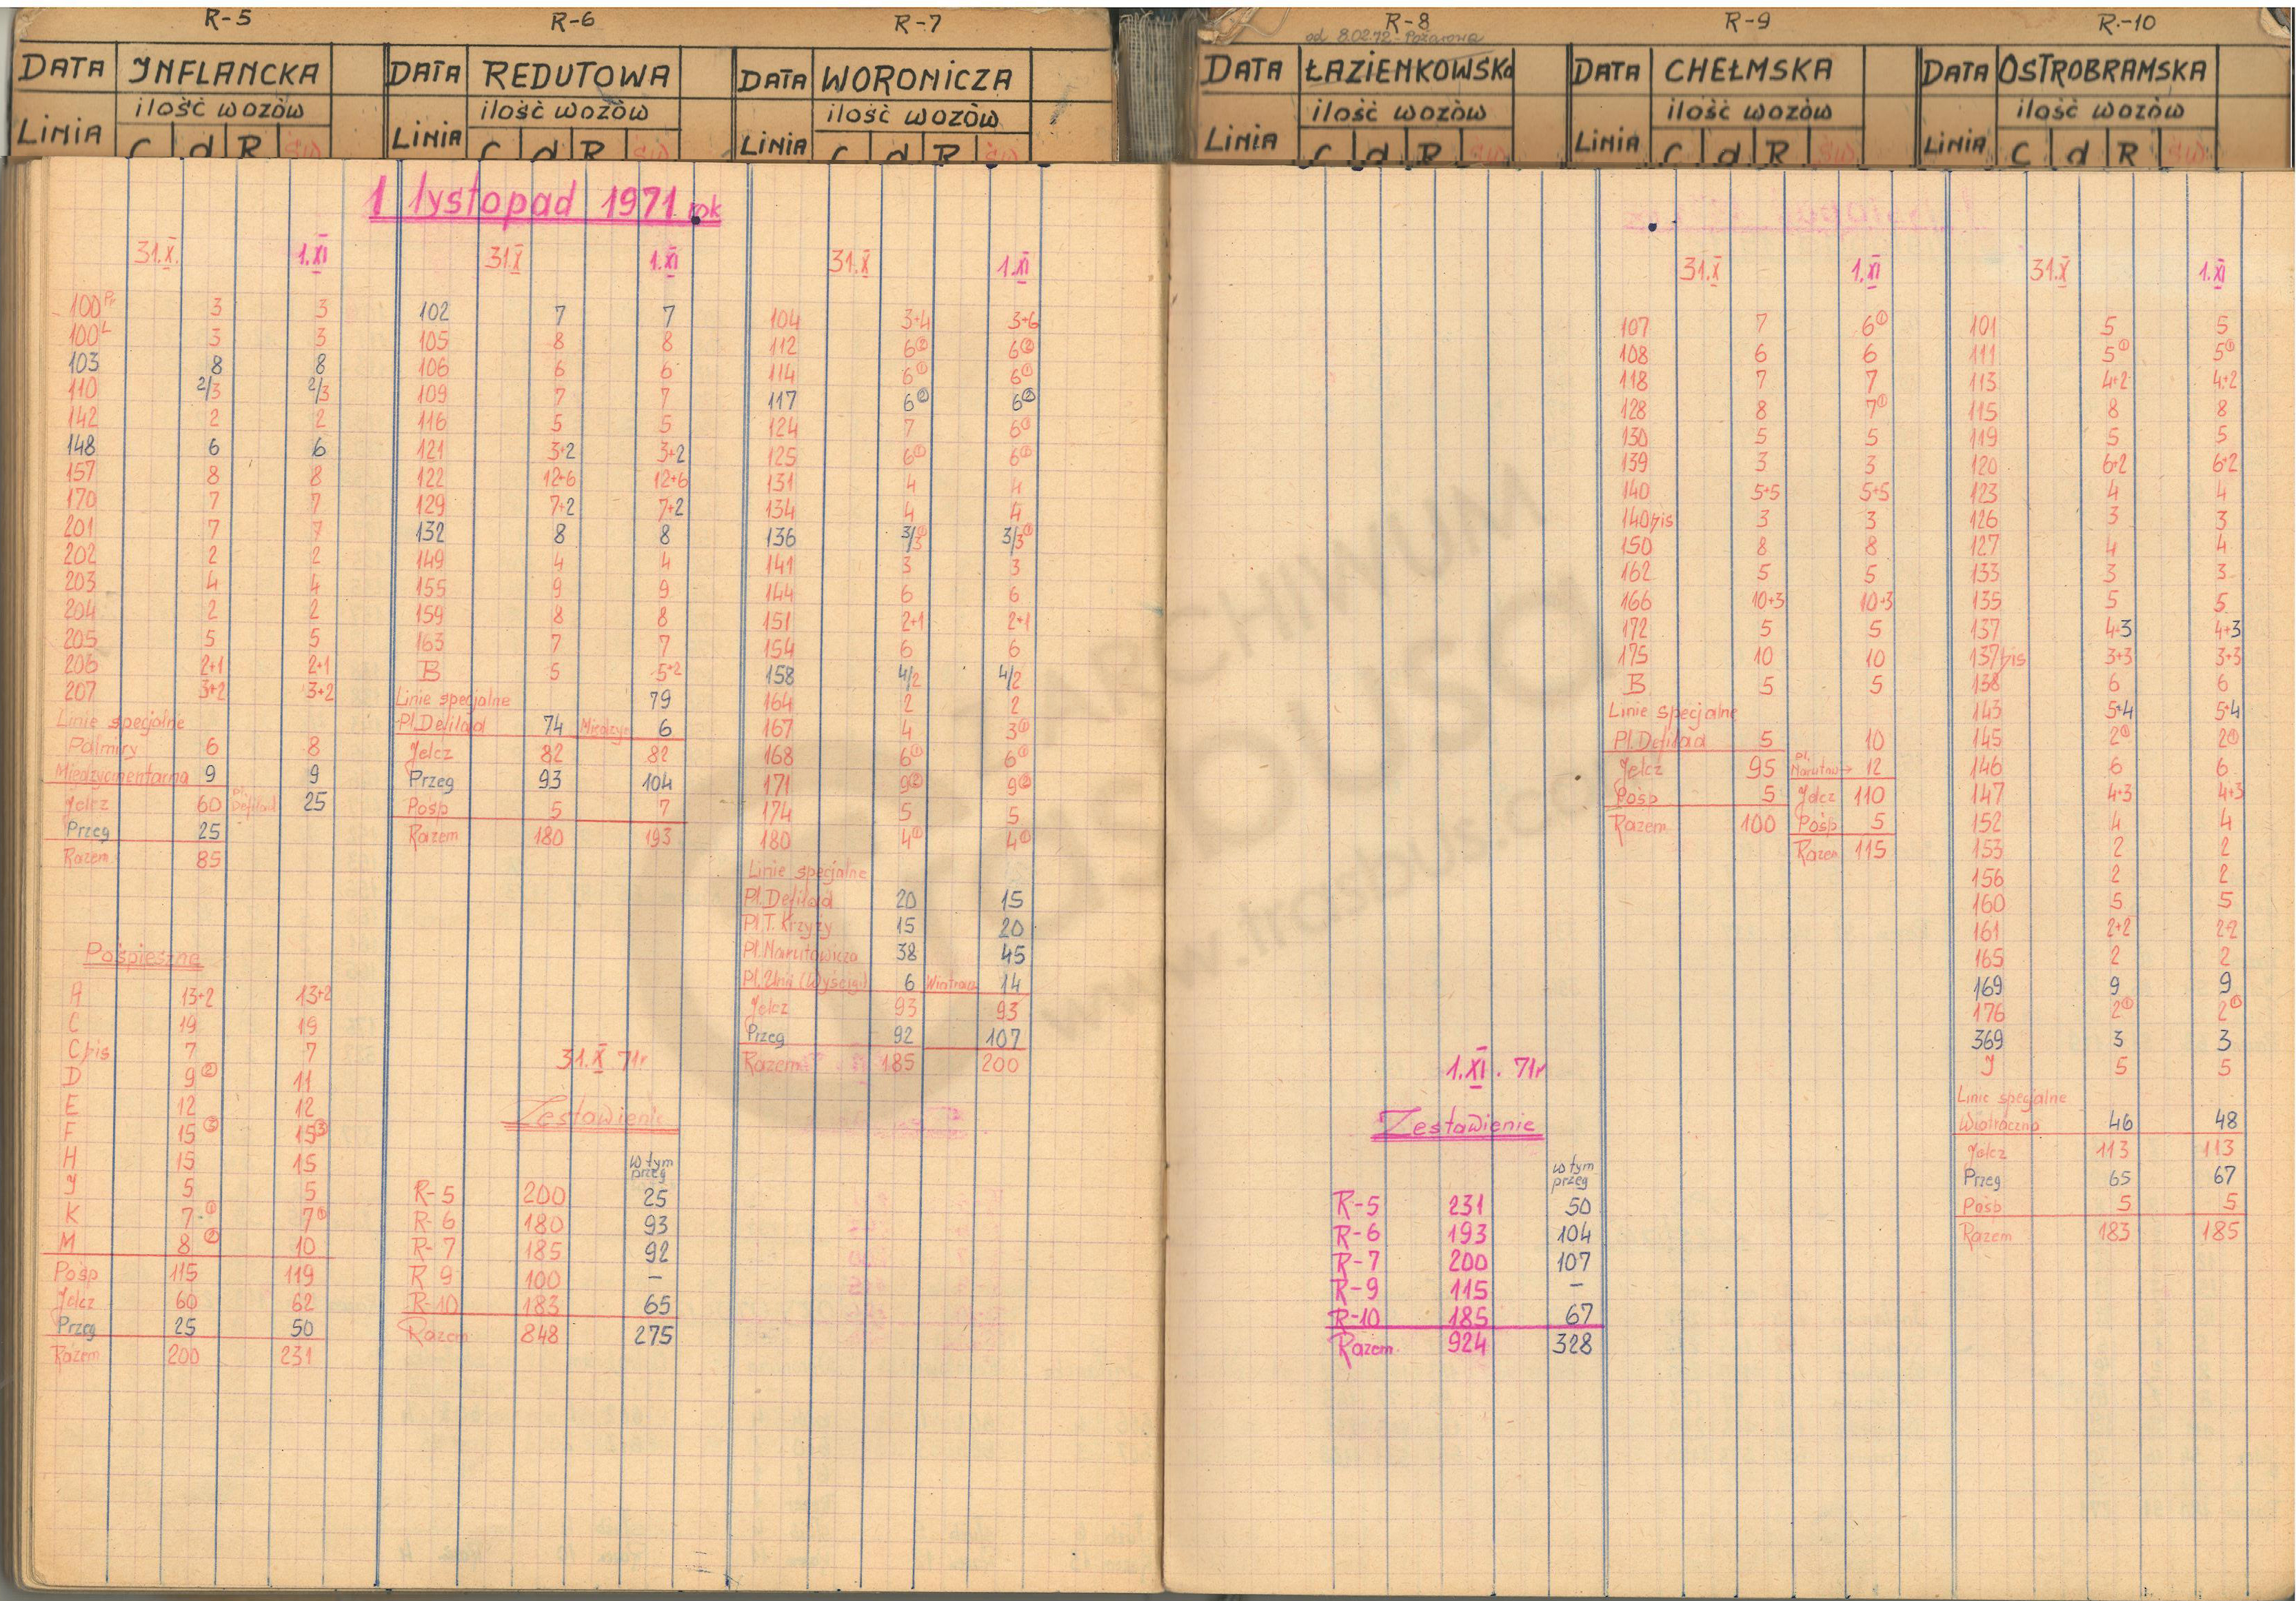 R-5
DATA INFLANCKA
ilość wozów
LINIA C d R św
R-6
DATA REDUTOWA
ilość wozów
LINIA C d R św
R-7
DATA WORONICZA
ilość wozów
LINIA C d R św
R-8
od 8.02.72 - Pożarowa
DATA ŁAZIENKOWSKA
ilość wozów
LINIA C d R św
R-9
DATA CHEŁMSKA
ilość wozów
LINIA C d R św
R-10
DATA OSTROBRAMSKA
ilość wozów
LINIA C d R św
1 lystopad 1971 rok
31.X. 1.XI
100Pr 3 3
100L 3 3
103 8 8
110 2/3 2/3
142 2 2
148 6 6
157 8 8
170 7 7
201 7 7
202 2 2
203 4 4
204 2 2
205 5 5
206 2+1 2+1
207 3+2 3+2
Linie specjalne
Palmiry 6 8
Międzycmentarna 9 9
Jelcz 60 Pl. Defilad 25
Przeg 25
Razem 85
Pośpieszne
A 13+2 13+2
C 19 19
C bis 7 7
D 9② 11
E 12 12
F 15③ 15③
H 15 15
J 5 5
K 7① 7①
M 8② 10
Pośp 115 119
Jelcz 60 62
Przeg 25 50
Razem 200 231
31.X 1.XI
102 7 7
105 8 8
106 6 6
109 7 7
116 5 5
121 3+2 3+2
122 12+6 12+6
129 7+2 7+2
132 8 8
149 4 4
155 9 9
159 8 8
163 7 7
B 5 5+2
Linie specjalne 79
Pl. Defilad 74 Międzyc 6
Jelcz 82 82
Przeg 93 104
Pośp 5 7
Razem 180 193
31.X 71r
Zestawienie
w tym
przeg
R-5 200 25
R-6 180 93
R-7 185 92
R 9 100 –
R-10 183 65
Razem 848 275
31.X 1.XI
104 3+4 3+6
112 6② 6②
114 6① 6①
117 6② 6②
124 7 6①
125 6① 6①
131 4 4
134 4 4
136 3/3① 3/3①
141 3 3
144 6 6
151 2+1 2+1
154 6 6
158 4/2 4/2
164 2 2
167 4 3①
168 6① 6①
171 9② 9②
174 5 5
180 4① 4①
Linie specjalne
Pl. Defilad 20 15
Pl. T. Krzyży 15 20
Pl. Narutowicza 38 45
Pl. Unii (Wyścigi) 6 Wiatracz 14
Jelcz 93 93
Przeg 92 107
Razem 185 200
1.XI. 71r
Zestawienie
w tym
przeg
R-5 231 50
R-6 193 104
R-7 200 107
R-9 115 –
R-10 185 67
Razem 924 328
31.X 1.XI
107 7 6①
108 6 6
118 7 7
128 8 7①
130 5 5
139 3 3
140 5+5 5+5
140bis 3 3
150 8 8
162 5 5
166 10+3 10+3
172 5 5
175 10 10
B 5 5
Linie specjalne
Pl. Defilad 5 10
Jelcz 95 Pl. Narutow→ 12
Pośp 5 Jelcz 110
Razem 100 Pośp 5
Razem 115
31.X 1.XI
101 5 5
111 5① 5①
113 4+2 4+2
115 8 8
119 5 5
120 6+2 6+2
123 4 4
126 3 3
127 4 4
133 3 3
135 5 5
137 4+3 4+3
137bis 3+3 3+3
138 6 6
143 5+4 5+4
145 2① 2①
146 6 6
147 4+3 4+3
152 4 4
153 2 2
156 2 2
160 5 5
161 2+2 2+2
165 2 2
169 9 9
176 2① 2①
369 3 3
J 5 5
Linie specjalne
Wiatraczna 46 48
Jelcz 113 113
Przeg 65 67
Pośp 5 5
Razem 183 185